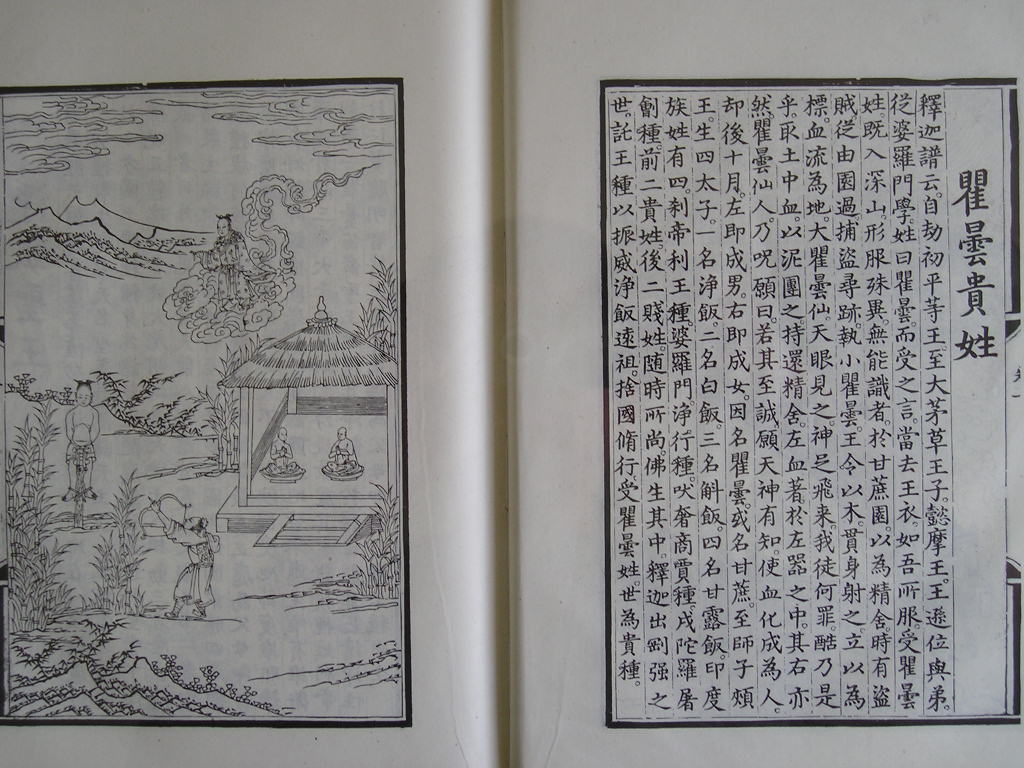 瞿曇貴姓
釋迦譜云。自劫初平等王至大茅草王子。懿摩王。王遜位與弟。
從婆羅門學。姓曰瞿曇。而受之言。當去王衣。如吾所服。受瞿曇
姓。既入深山。形服殊異。無能識者。於甘蔗園。以為精舍。時有盜
賊。從由園過。捕盜尋跡。執小瞿曇。王令以木貫身射之。立以為
標。血流為地。大瞿曇仙。天眼見之。神足飛來。我徒何罪。酷乃是
乎。取土中血。以泥團之。持還精舍。左血著於左器之中。其右亦
然。瞿曇仙人。乃呪願曰。若其至誠。願天神有知。使血化成為人。
却後十月。左即成男。右即成女。因名瞿曇。或名甘蔗。至師子頰
王。生四太子。一名淨飯。二名白飯。三名斛飯。四名甘露飯。印度
族姓有四。刹帝利王種。婆羅門淨行種。吠奢商賈種。戍陀羅屠
劊種。前二貴姓。後二賤姓。隨時所尚。佛生其中。釋迦出剛强之
世。託王種以振威。淨飯遠祖。捨國脩行。受瞿曇姓。世為貴種。